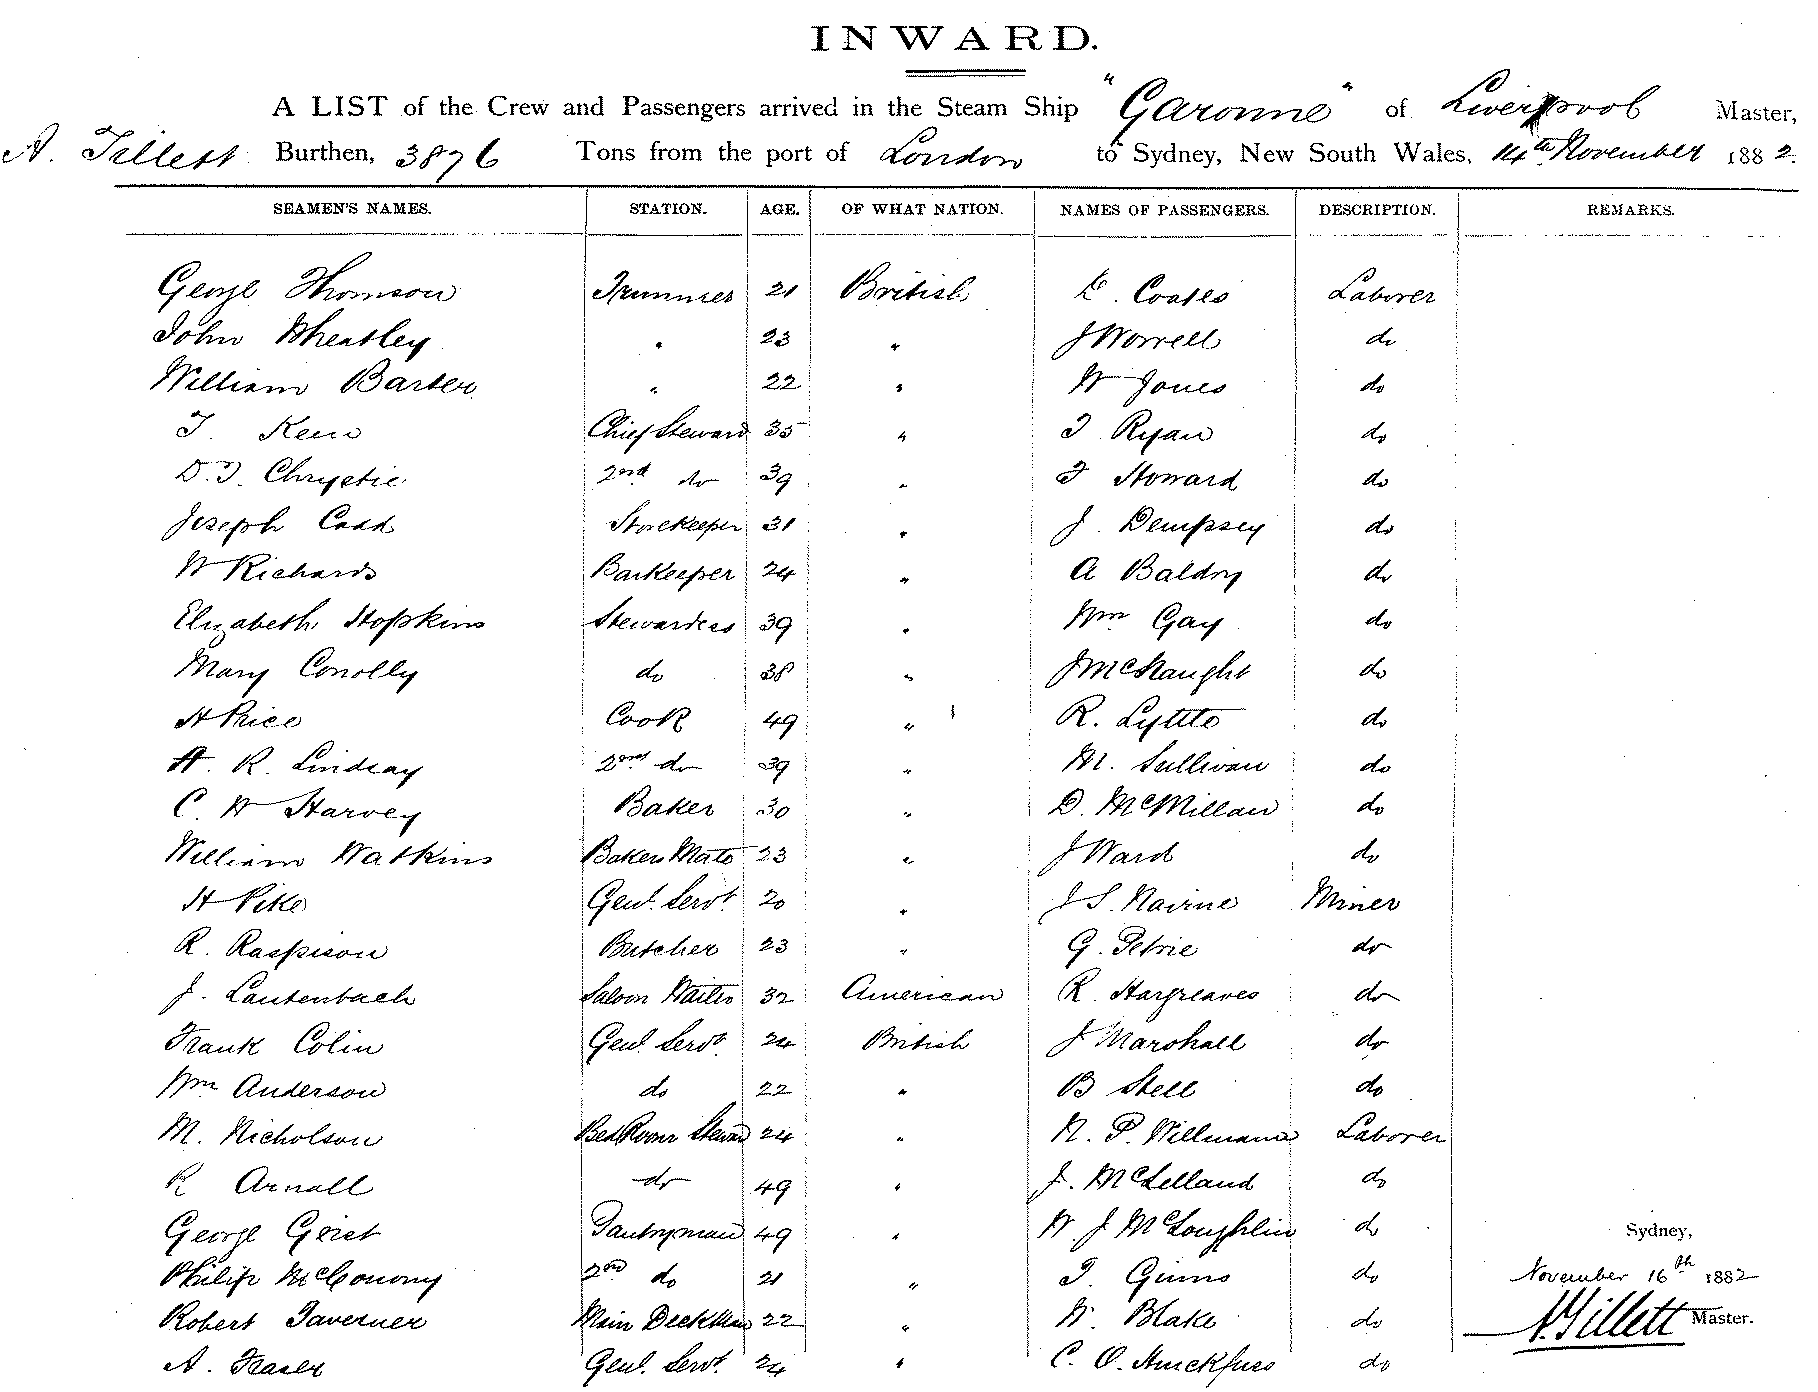 INWARD.
A LIST of the Crew and Passengers arrived in the Steam Ship "Garonne" of Liverpool Master,
A. Tillett Burthen, 3876 Tons from the port of London to Sydney, New South Wales, 14th November 1882.
SEAMEN'S NAMES. STATION. AGE. OF WHAT NATION. NAMES OF PASSENGERS. DESCRIPTION. REMARKS.
George Thomson Trimmer 21 British Coates Laborer
John Wheatley " 23 " J Worrell do
William Barber " 22 " W Jones do
T. Keen Chief Steward 35 " T Ryan do
D. T. Chrystie 2nd do 39 " T Howard do
Joseph Codd Storekeeper 31 " J. Dempsey do
W Richards Barkeeper 24 " A Baldry do
Elizabeth Hopkins Stewardess 39 " Wm Gay do
Mary Conolly do 38 " J McNaught do
H Price Cook 49 " R. Lyttle do
H. R. Lindsay 2nd do 39 " M. Sullivan do
C. W Harvey Baker 30 " D. McMillan do
William Watkins Bakers Mate 23 " J Ward do
H Pike Genl. Servt. 20 " J S. Nairne Miner
R. Raspison Butcher 23 " G. Petrie do
J. Lautenbach Saloon Waiter 32 American R. Hargreaves do
Frank Colin Genl. Servt. 24 British J Marshall do
Wm Anderson do 22 " B Stell do
M. Nicholson Bed Room Steward 24 " N. P. Willmann Laborer
R Arnall do 49 " J. McLelland do
George Geist Pantryman 49 " W. J McLoughlin do
Sydney,
Philip McConomy 2nd do 21 " T. Ginns do
November 16th 1882
Robert Taverner Main Deckman 22 " W. Blake do
A. Tillett Master.
A. Fraser Genl. Servt. 24 " C. O. Huckfuss do